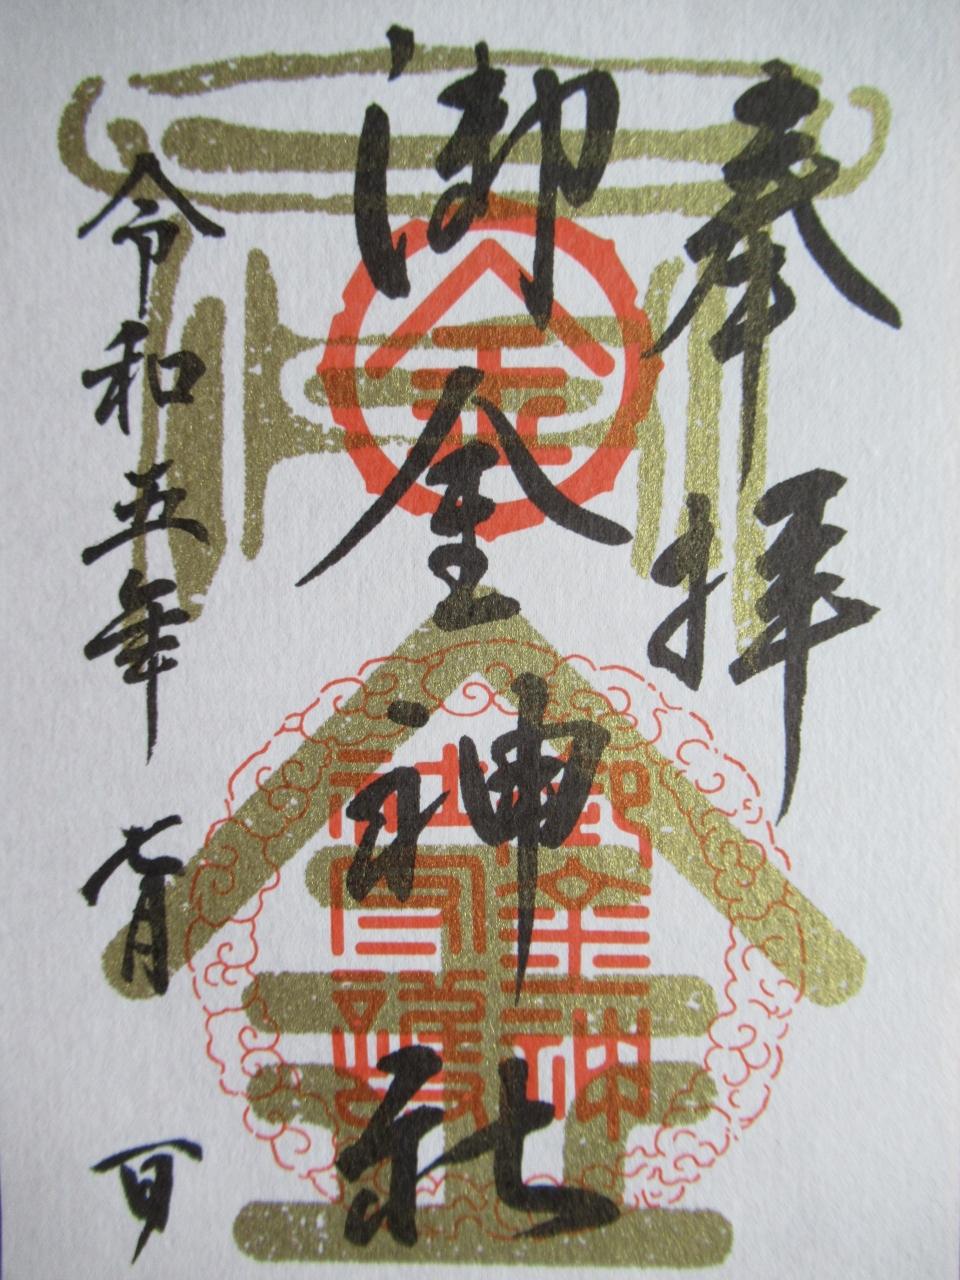 奉拝
御金神社
令和五年七月一日
金
御金神
社